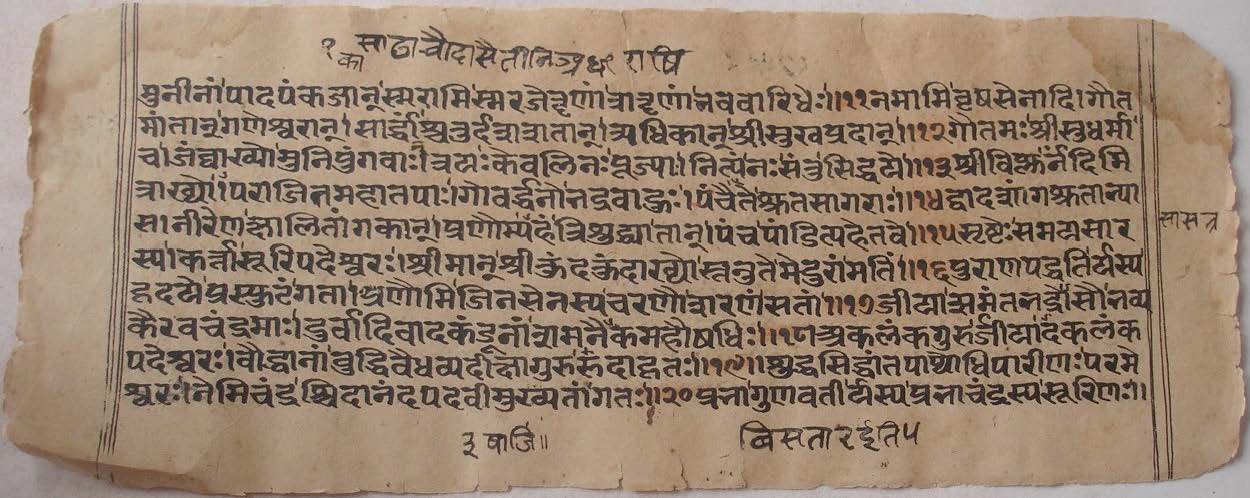 १ का साठा चौदासै तीनि ज्प्रधर राषि
मुनीनां पादपंकजान् स्मरामि स्मरजेतॄणां त्रातॄणां भववारिधेः॥११ नमामि वृषसेनादि।गौत
मांतान् गणेश्वरान्।सार्द्धांश्चतुर्दशशतान् अधिकान् श्रीसुखप्रदान्॥१२ गौतमः श्रीसुधर्मा
च।जंबाख्यो मुनिपुंगवाः।त्रयः केवलिनः पूज्या।नित्यं नः संतु सिद्धये॥१३ श्रीविष्णुर्नंदिमि
त्राख्यो।पराजितमहातपाः।गोवर्द्धनो भद्रबाहुः।पंचैते श्रुतसागराः॥१४ द्वादशांगश्रुताभ्या
सानीरेण क्षालितांगकान्।प्रणौम्यहं त्रिशुद्ध्या तान्।पंच पांडित्यहेतवे॥१५ सृष्टेः समयसार
स्य।कर्त्ता सूरिपदेश्वरः।श्रीमान् श्रीकुंदकुंदाख्यो।स्तनुते मेदुरां मतिं॥१६ पुराणपद्धतिर्यस्य
हृदये प्रस्फुटंगता।प्रणौमि जिनसेनस्य चरणौ शरणं सतां॥१७ जीयात्समंतभद्रोसौ भव्य
कैरवचंद्रमाः।दुर्वादिवादकंडूनां शमनैकमहौषधिः॥१८ अकलंकगुरुर्जीयादकलंक
पदेश्वरः।बौद्धानां बुद्धिवैधव्यदीक्षागुरुरुदाहृतः॥१९ शुद्धसिद्धांतपाथोधिपारीणः परमे
श्वरः।नेमिचंद्रश्चिदानंदपदवीमुख्यतां गतः॥२० प्रभागुणवती यस्य प्रभाचंद्रस्य सूरिणः॥
सासत्र
३ षाजि॥
बिसतार ईति ५